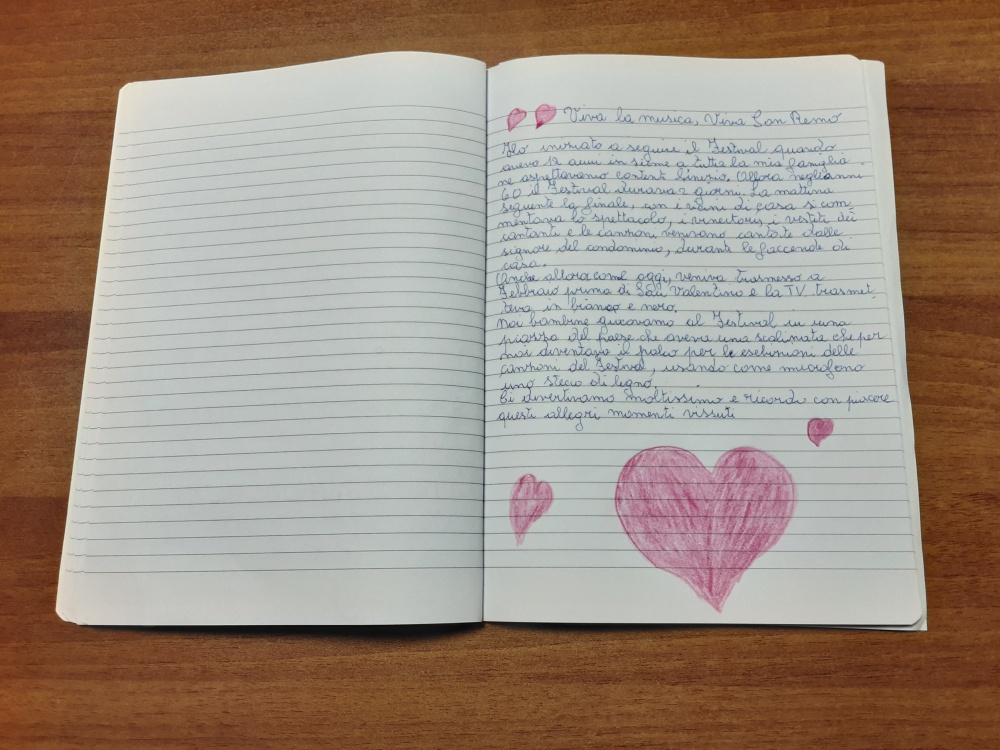 Viva la musica, Viva San Remo
Ho iniziato a seguire il Festival quando
avevo 12 anni in sieme a tutta la mia famiglia
ne aspettavamo contenti l'inizio. Allora negli anni
60 il Festival durava 2 giorni. La mattina
seguente la finale, con i vicini di casa si com-
mentava lo spettacolo, i vincitori, i vestiti dei
cantanti e le canzoni venivano cantate dalle
signore del condominio, durante le faccende di
casa.
Anche allora come oggi, veniva trasmesso a
Febbraio prima di San Valentino e la TV trasmet-
teva in bianco e nero.
Noi bambine giocavamo al Festival in una
piazza del paese che aveva una scalinata che per
noi diventava il palco per le esebizioni delle
canzoni del Festival, usando come microfono
uno stecio di legno.
Ci divertivamo moltissimo e ricordo con piacere
questi allegri momenti vissuti